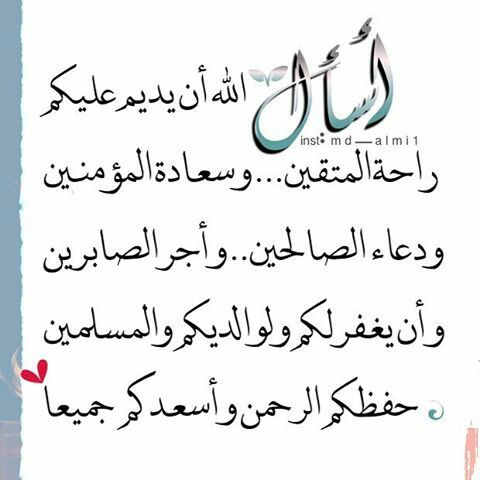 أسأل الله أن يديم عليكم
inst: md__almi1
راحة المتقين...وسعادة المؤمنين
ودعاء الصالحين..وأجر الصابرين
وأن يغفر لكم ولوالديكم والمسلمين
حفظكم الرحمن وأسعدكم جميعا